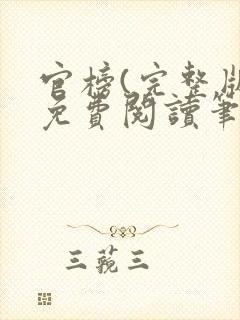 官榜(完整版
免費閱讀筆
三藐三